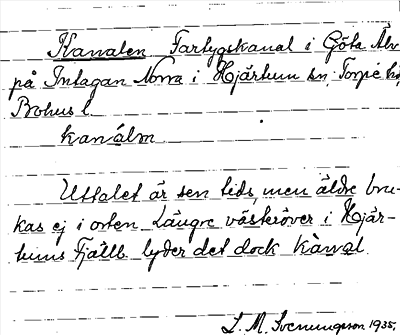 Kanalen Fartygskanal i Göta Älv
på Intagan Norra i Hjärtum sn, Torpe hd,
Bohus l.
kanálın
Uttalet är sen tids, men äldre bru-
kas ej i orten. Längre västeröver i Hjär-
tums Fjälle lyder det dock kànal
L. M. Svenungsson 1935.